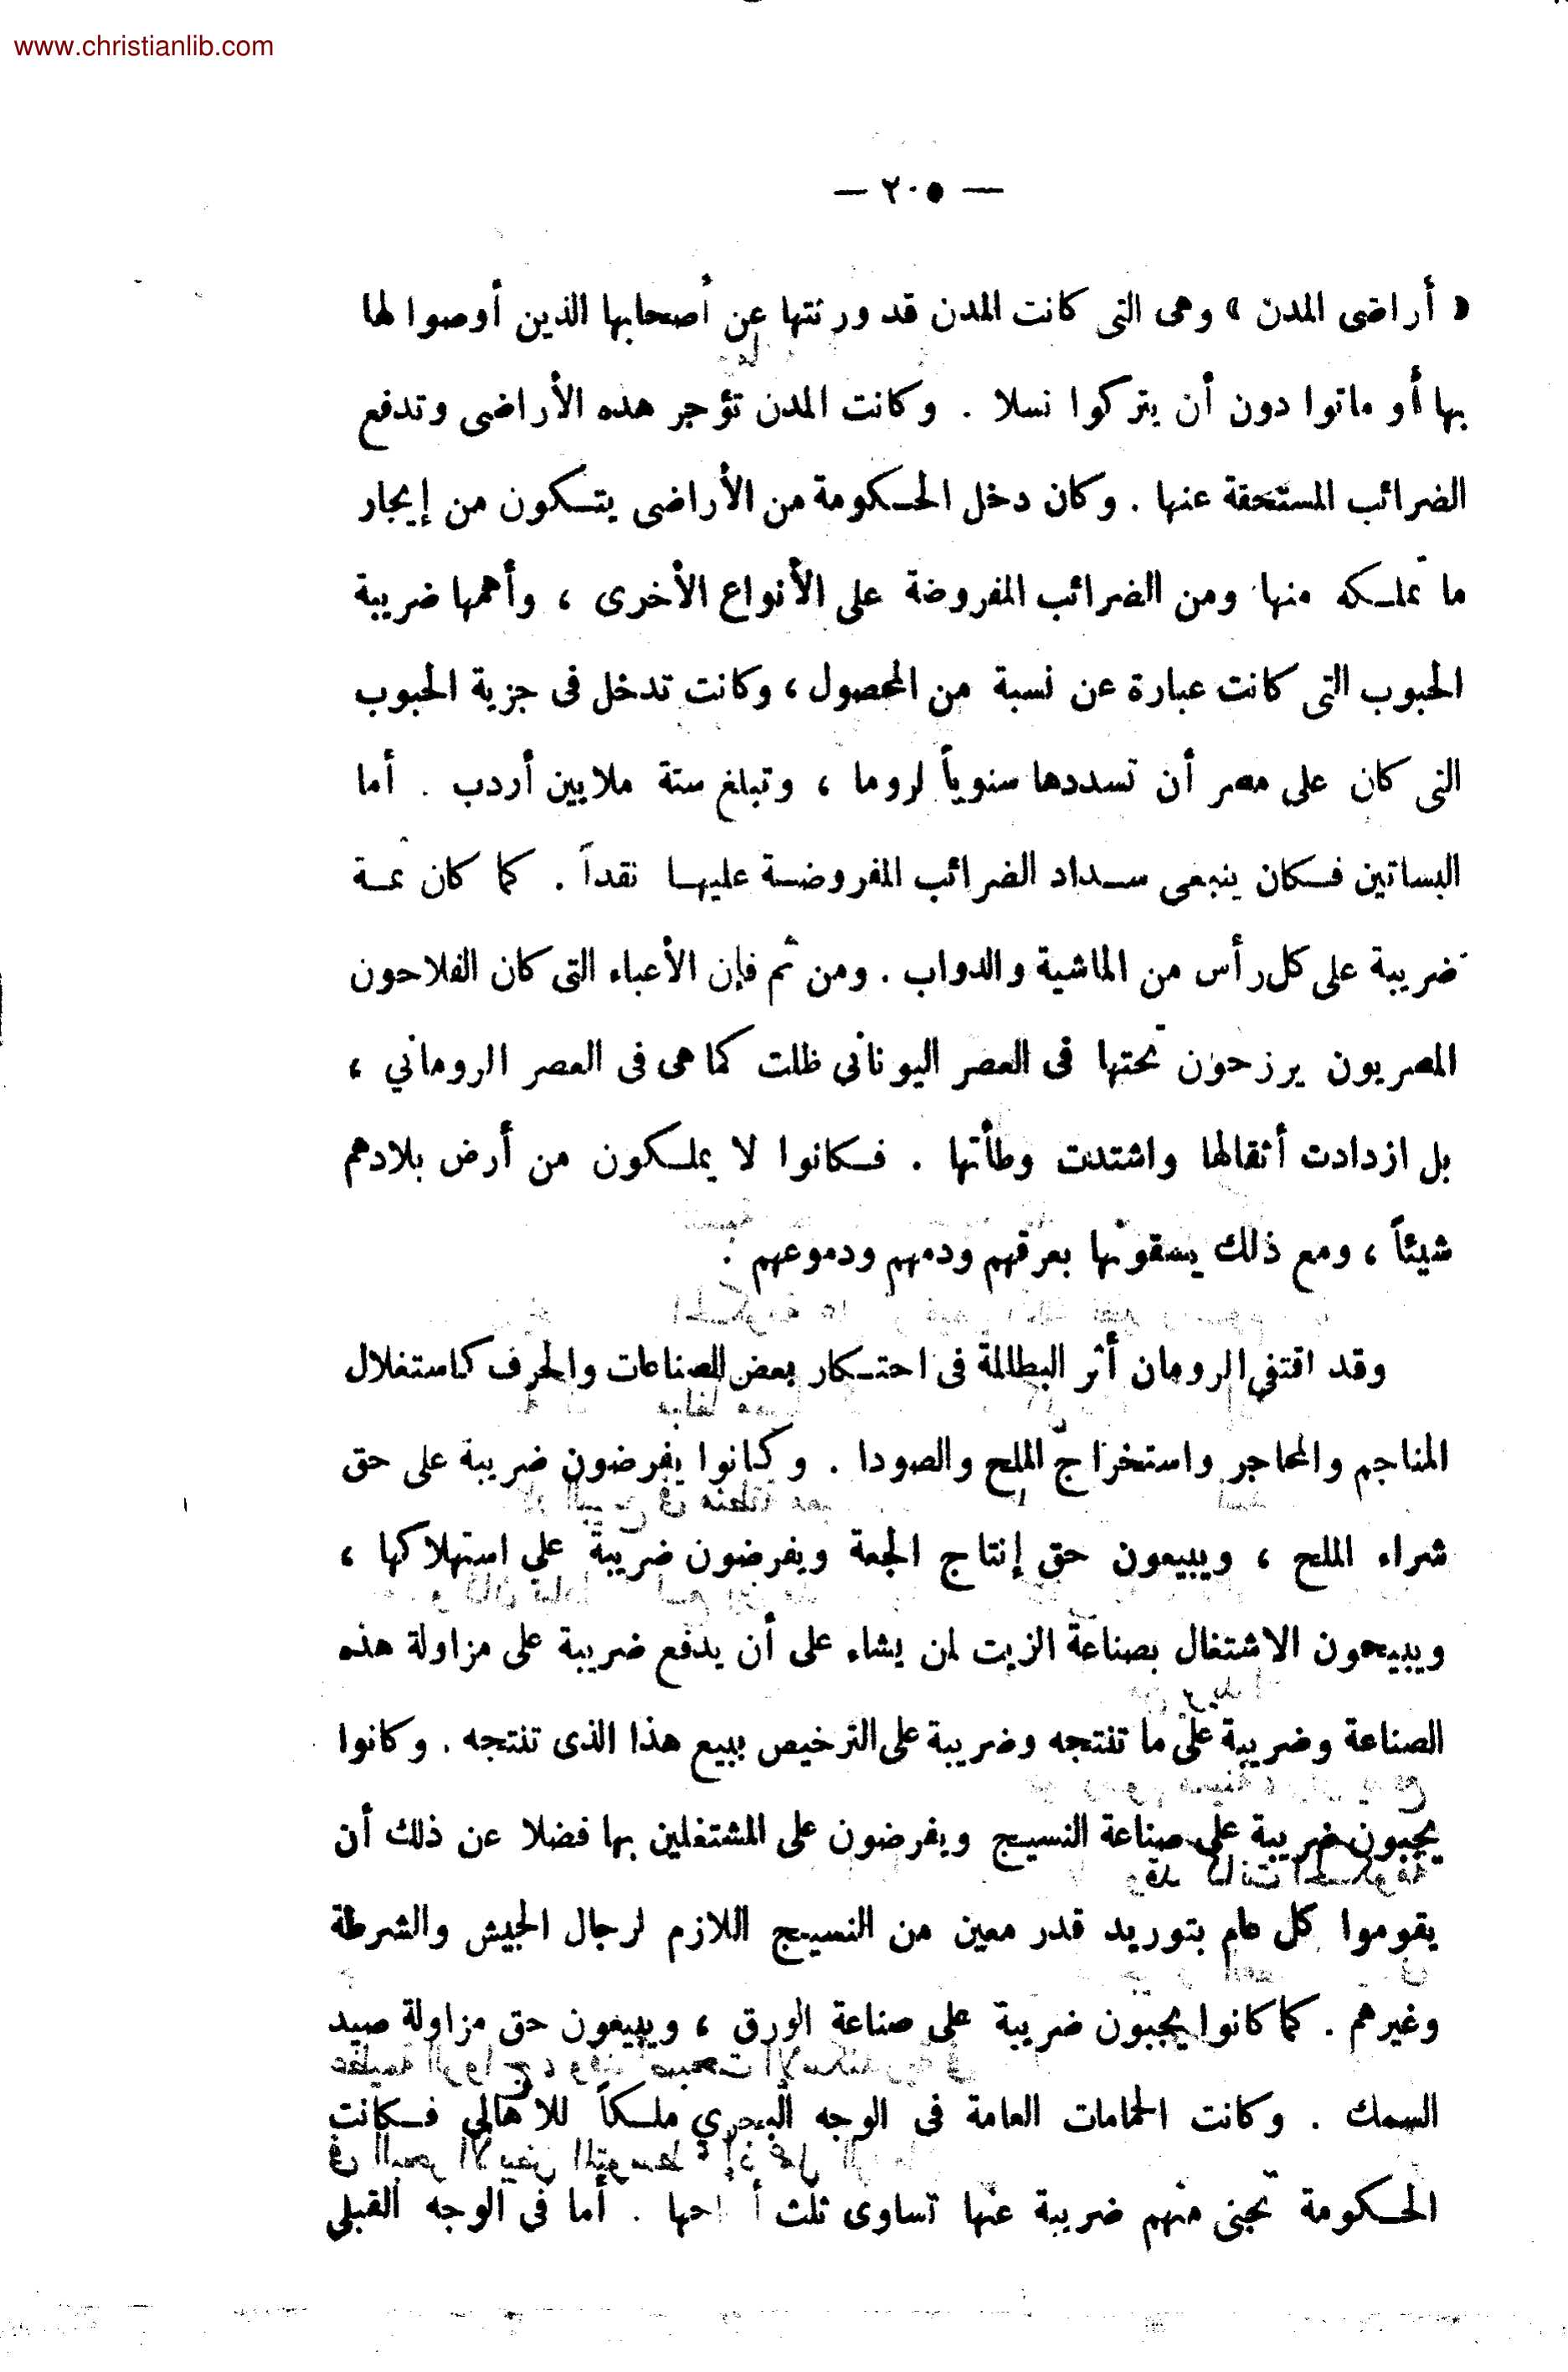 www.christianlib.com
— ٢٠٥ —
« أراضى المدن » وهى التى كانت المدن قد ورثتها عن أصحابها الذين أوصوا لها
بها أو ماتوا دون أن يتركوا نسلا . وكانت المدن تؤجر هذه الأراضى وتدفع
الضرائب المستحقة عنها . وكان دخل الحكومة من الأراضى يتكون من إيجار
ما تملكه منها ومن الضرائب المفروضة على الأنواع الأخرى ، وأهمها ضريبة
الحبوب التى كانت عبارة عن نسبة من المحصول ، وكانت تدخل فى جزية الحبوب
التى كان على مصر أن تسددها سنوياً لروما ، وتبلغ ستة ملايين أردب . أما
البساتين فكان ينبغى سداد الضرائب المفروضة عليها نقداً . كما كان ثمة
ضريبة على كل رأس من الماشية والدواب . ومن ثم فإن الأعباء التى كان الفلاحون
المصريون يرزحون تحتها فى العصر اليونانى ظلت كما هى فى العصر الروماني ،
بل ازدادت أثقالها واشتدت وطأتها . فكانوا لا يملكون من أرض بلادهم
شيئاً ، ومع ذلك يسقونها بعرقهم ودمهم ودموعهم .
وقد اقتفي الرومان أثر البطالمة فى احتكار بعض الصناعات والحرف كاستغلال
المناجم والمحاجر واستخراج الملح والصودا . وكانوا يفرضون ضريبة على حق
شراء الملح ، ويبيعون حق إنتاج الجعة ويفرضون ضريبة علي استهلاكها ،
ويبيحون الاشتغال بصناعة الزيت لمن يشاء على أن يدفع ضريبة على مزاولة هذه
الصناعة وضريبة على ما تنتجه وضريبة على الترخيص ببيع هذا الذى تنتجه . وكانوا
يجبون ضريبة على صناعة النسيج ويفرضون على المشتغلين بها فضلا عن ذلك أن
يقوموا كل عام بتوريد قدر معين من النسيج اللازم لرجال الجيش والشرطة
وغيرهم . كما كانوا يجبون ضريبة على صناعة الورق ، ويبيعون حق مزاولة صيد
السمك . وكانت الحمامات العامة فى الوجه البحري ملكاً للأهالي فكانت
الحكومة تجنى منهم ضريبة عنها تساوى ثلث . أما فى الوجه القبلي